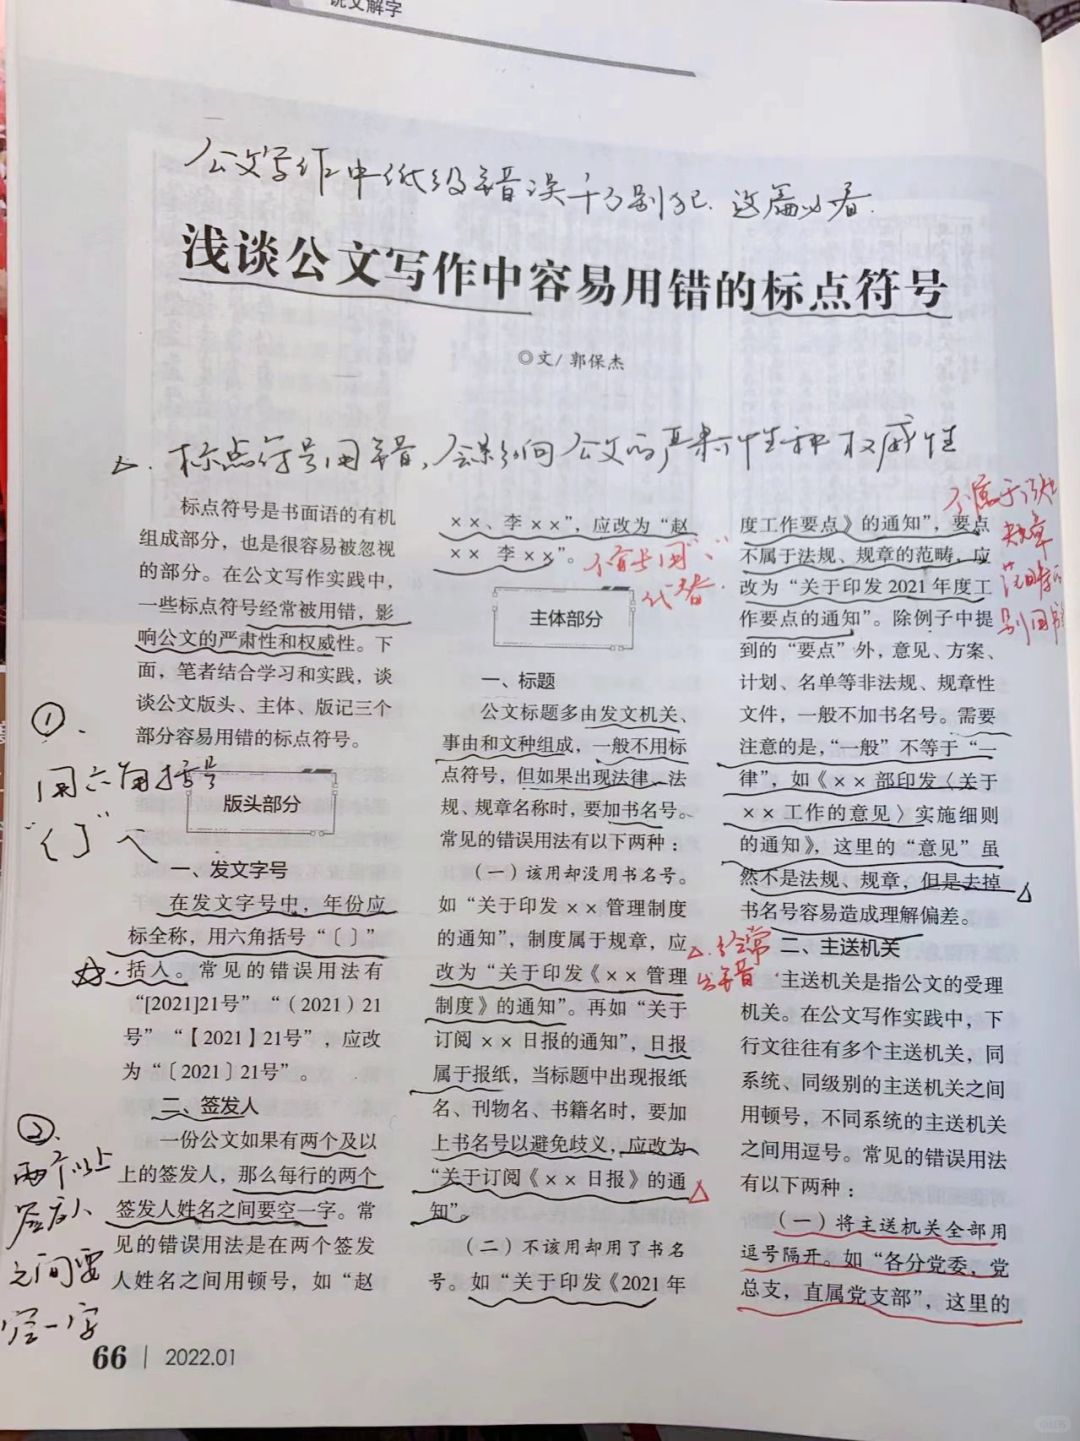 说文解字
公文写作中低级错误千万别犯.这篇必看.
浅谈公文写作中容易用错的标点符号
◎文/ 郭保杰
△.标点符号用错,会影响公文的严肃性和权威性
标点符号是书面语的有机
组成部分，也是很容易被忽视
的部分。在公文写作实践中，
一些标点符号经常被用错，影
响公文的严肃性和权威性。下
面，笔者结合学习和实践，谈
谈公文版头、主体、版记三个
部分容易用错的标点符号。
①.
用六角括号
“〔〕”
版头部分
一、发文字号
在发文字号中，年份应
标全称，用六角括号“〔〕”
括入。常见的错误用法有
“[2021]21号”“（2021）21
号”“【2021】21号”，应改
为“〔2021〕21号”。
二、签发人
②.
两个以上
签发人
之间要
空一字
一份公文如果有两个及以
上的签发人，那么每行的两个
签发人姓名之间要空一字。常
见的错误用法是在两个签发
人姓名之间用顿号，如“赵
××、李××”，应改为“赵
×× 李××”。
不宜用“、”
代替.
主体部分
一、标题
公文标题多由发文机关、
事由和文种组成，一般不用标
点符号，但如果出现法律、法
规、规章名称时，要加书名号。
常见的错误用法有以下两种：
（一）该用却没用书名号。
如“关于印发××管理制度
的通知”，制度属于规章，应
改为“关于印发《××管理
制度》的通知”。再如“关于
订阅××日报的通知”，日报
属于报纸，当标题中出现报纸
名、刊物名、书籍名时，要加
上书名号以避免歧义，应改为
“关于订阅《××日报》的通
知”。
（二）不该用却用了书名
号。如“关于印发《2021年
度工作要点》的通知”，要点
不属于法规、规章的范畴，应
改为“关于印发2021年度工
作要点的通知”。除例子中提
到的“要点”外，意见、方案、
计划、名单等非法规、规章性
文件，一般不加书名号。需要
注意的是，“一般”不等于“一
律”，如《××部印发〈关于
××工作的意见〉实施细则
的通知》，这里的“意见”虽
然不是法规、规章，但是去掉
书名号容易造成理解偏差。
不属于法规
规章
范畴的
别用书
△.经常
出错
二、主送机关
主送机关是指公文的受理
机关。在公文写作实践中，下
行文往往有多个主送机关，同
系统、同级别的主送机关之间
用顿号，不同系统的主送机关
之间用逗号。常见的错误用法
有以下两种：
（一）将主送机关全部用
逗号隔开。如“各分党委，党
总支，直属党支部”，这里的
66 | 2022.01